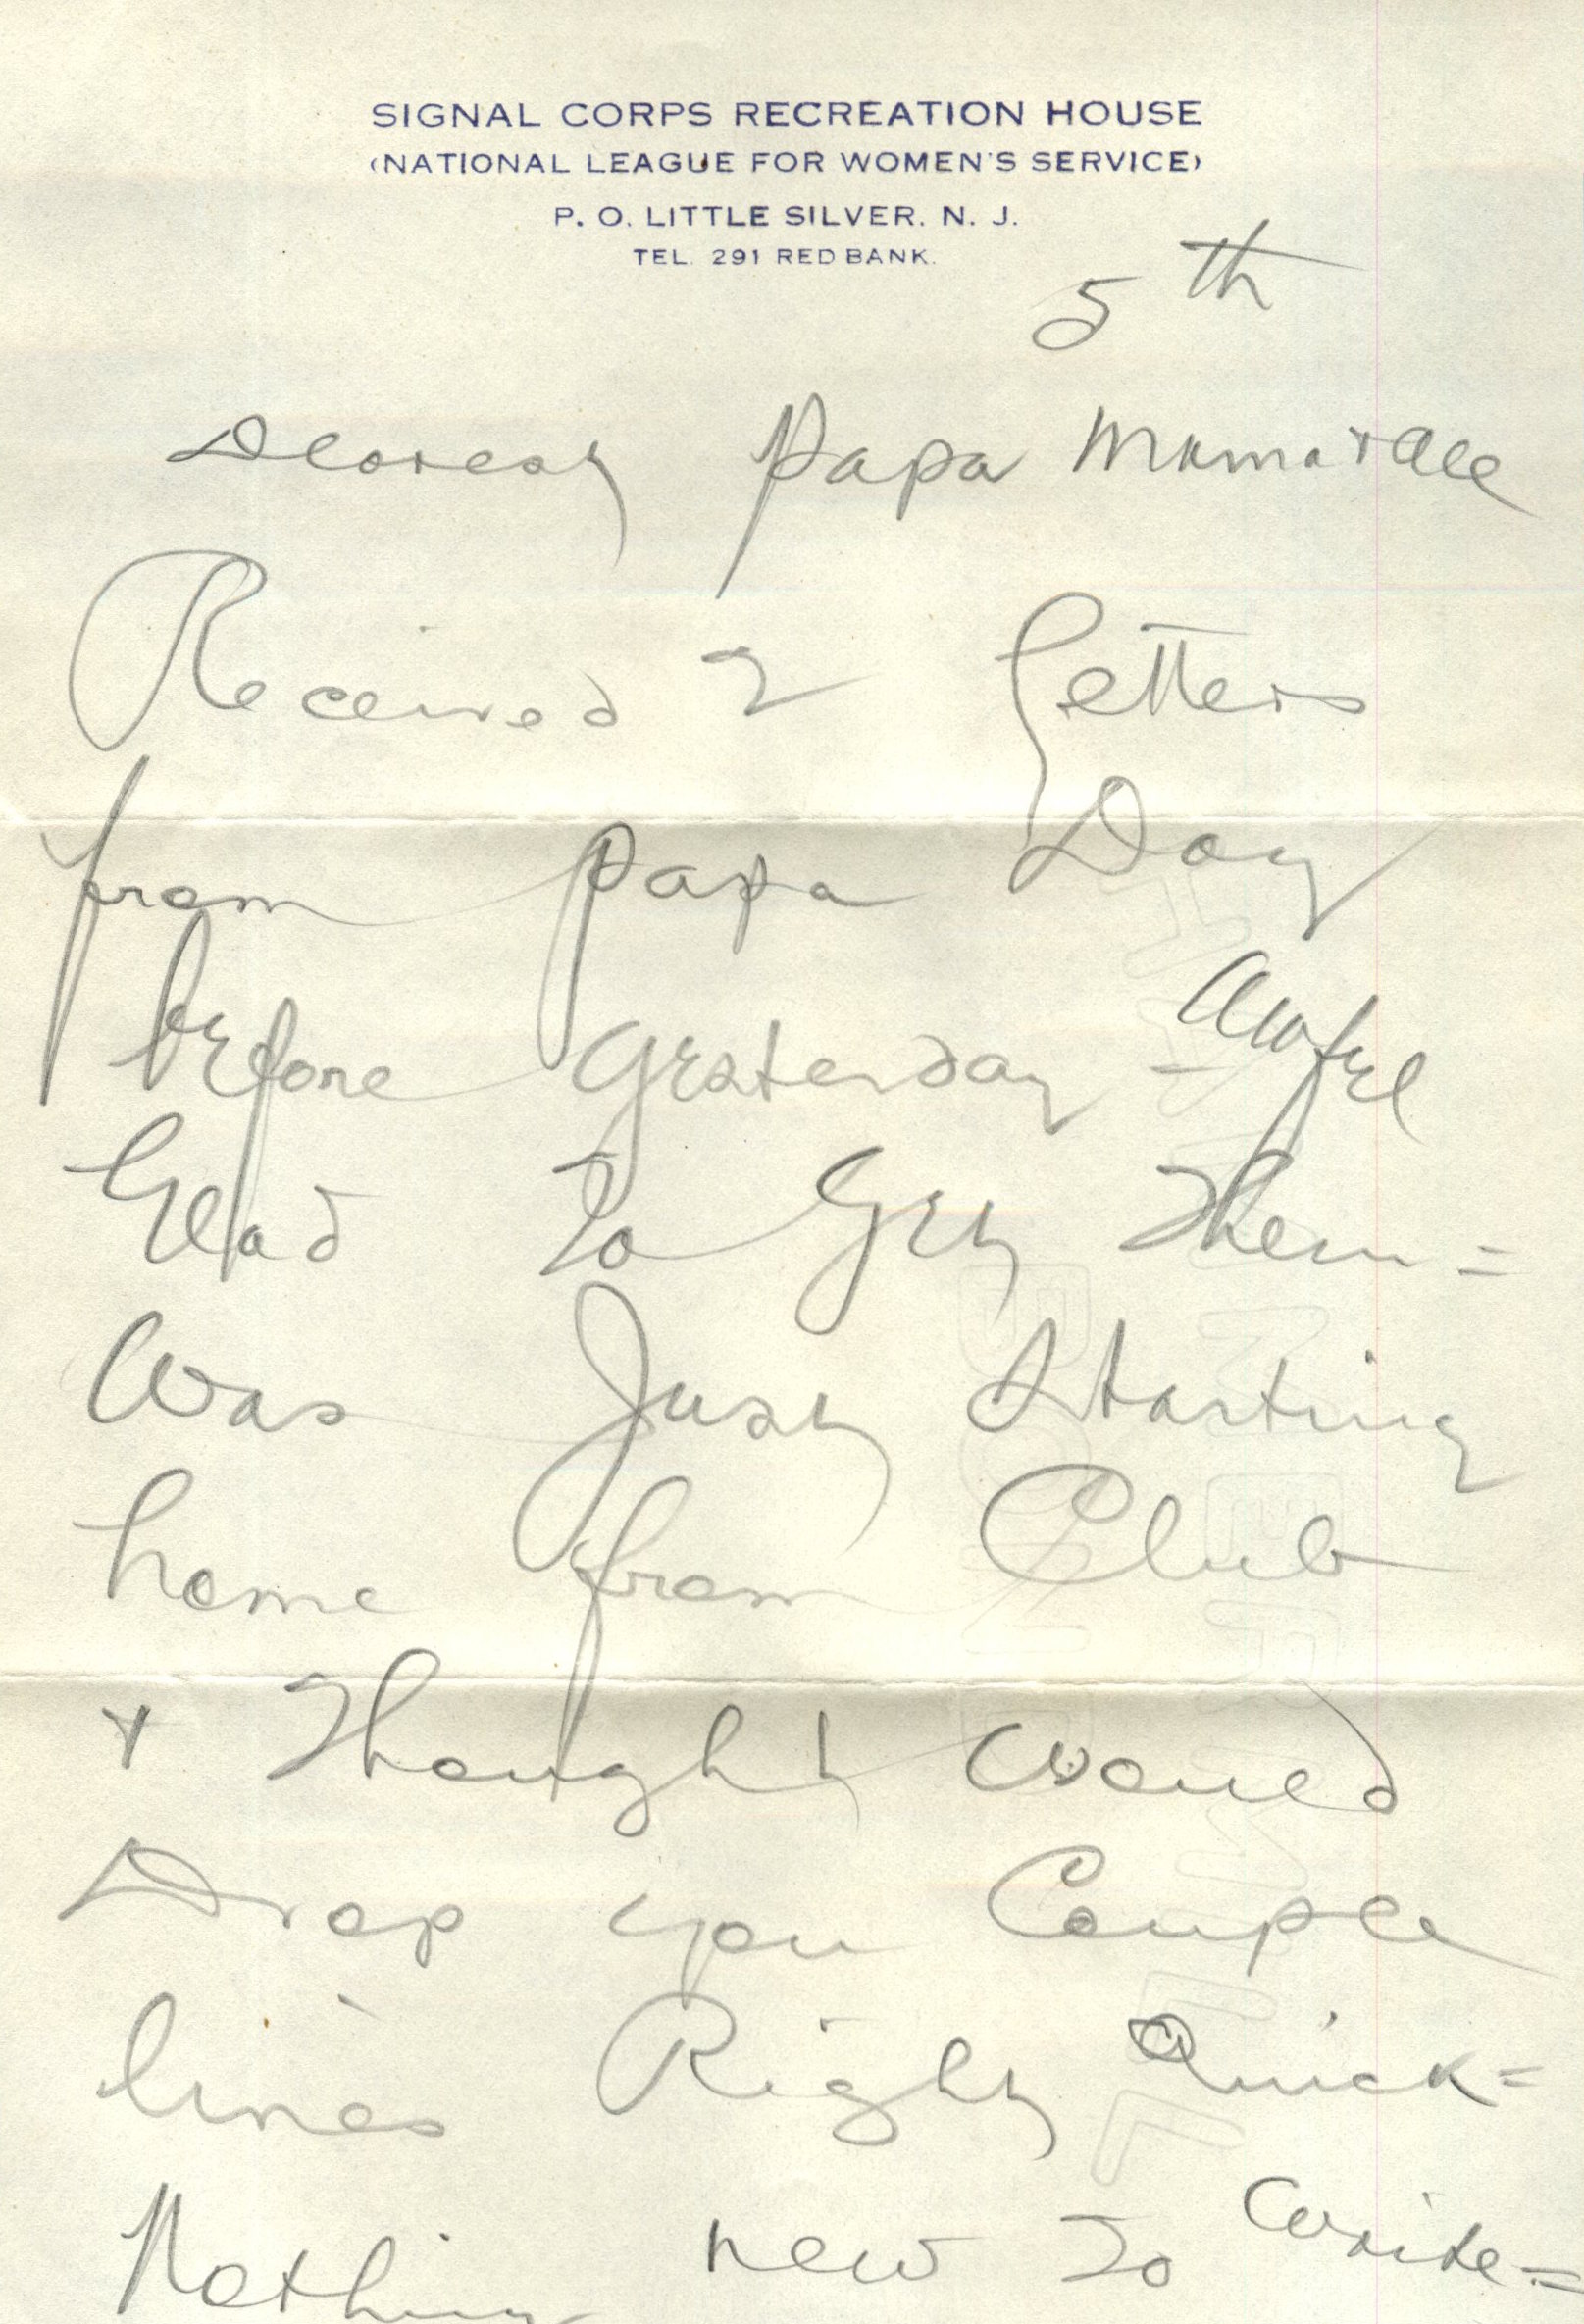 SIGNAL CORPS RECREATION HOUSE
(NATIONAL LEAGUE FOR WOMEN'S SERVICE)
P. O. LITTLE SILVER. N. J.
TEL. 291 RED BANK.
5th
Dearest Papa Mama + all
Received 2 letters
from Papa Day
before Yesterday - awful
Glad to Get Them =
Was Just Starting
home from Club
+ Thought would
Drop you Couple
lines Right Quick =
Nothing new to write =